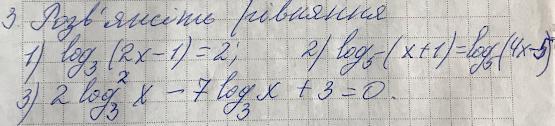 3. Розв'яжіть рівняння
1) log₃(2x-1)=2; 2) log₅(x+1)=log₅(4x-5)
3) 2 log₃²x - 7 log₃x + 3 = 0.